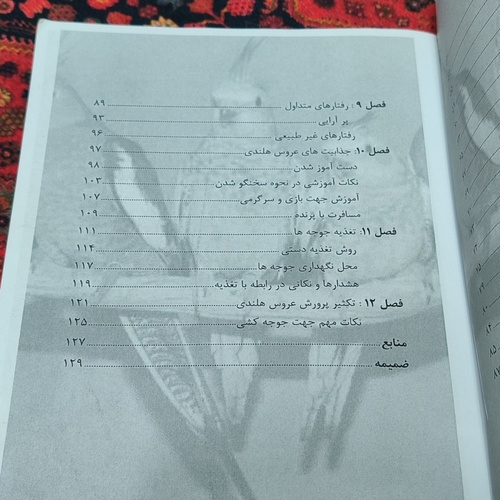 فصل ۹ : رفتارهای متداول ........ ۸۹
پر آرایی ........ ۹۳
رفتارهای غیر طبیعی ........ ۹۶
فصل ۱۰: جذابیت های عروس هلندی ........ ۹۷
دست آموز شدن ........ ۹۸
نکات آموزشی در نحوه سخنگو شدن ........ ۱۰۳
آموزش جهت بازی و سرگرمی ........ ۱۰۷
مسافرت با پرنده ........ ۱۰۹
فصل ۱۱: تغذیه جوجه ها ........ ۱۱۱
روش تغذیه دستی ........ ۱۱۴
محل نگهداری جوجه ها ........ ۱۱۷
هشدارها و نکاتی در رابطه با تغذیه ........ ۱۱۹
فصل ۱۲ : تکثیر پرورش عروس هلندی ........ ۱۲۱
نکات مهم جهت جوجه کشی ........ ۱۲۵
منابع ........ ۱۲۷
ضمیمه ........ ۱۲۹